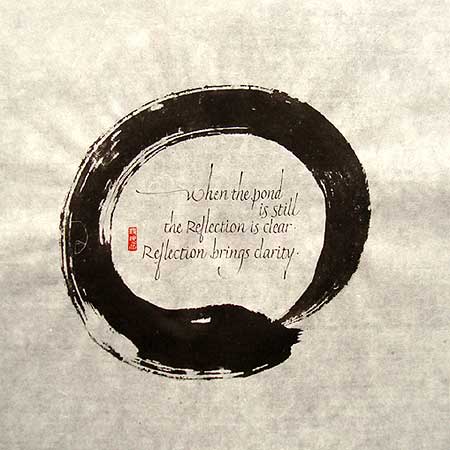 When the pond
is still
the Reflection is clear.
Reflection brings clarity.